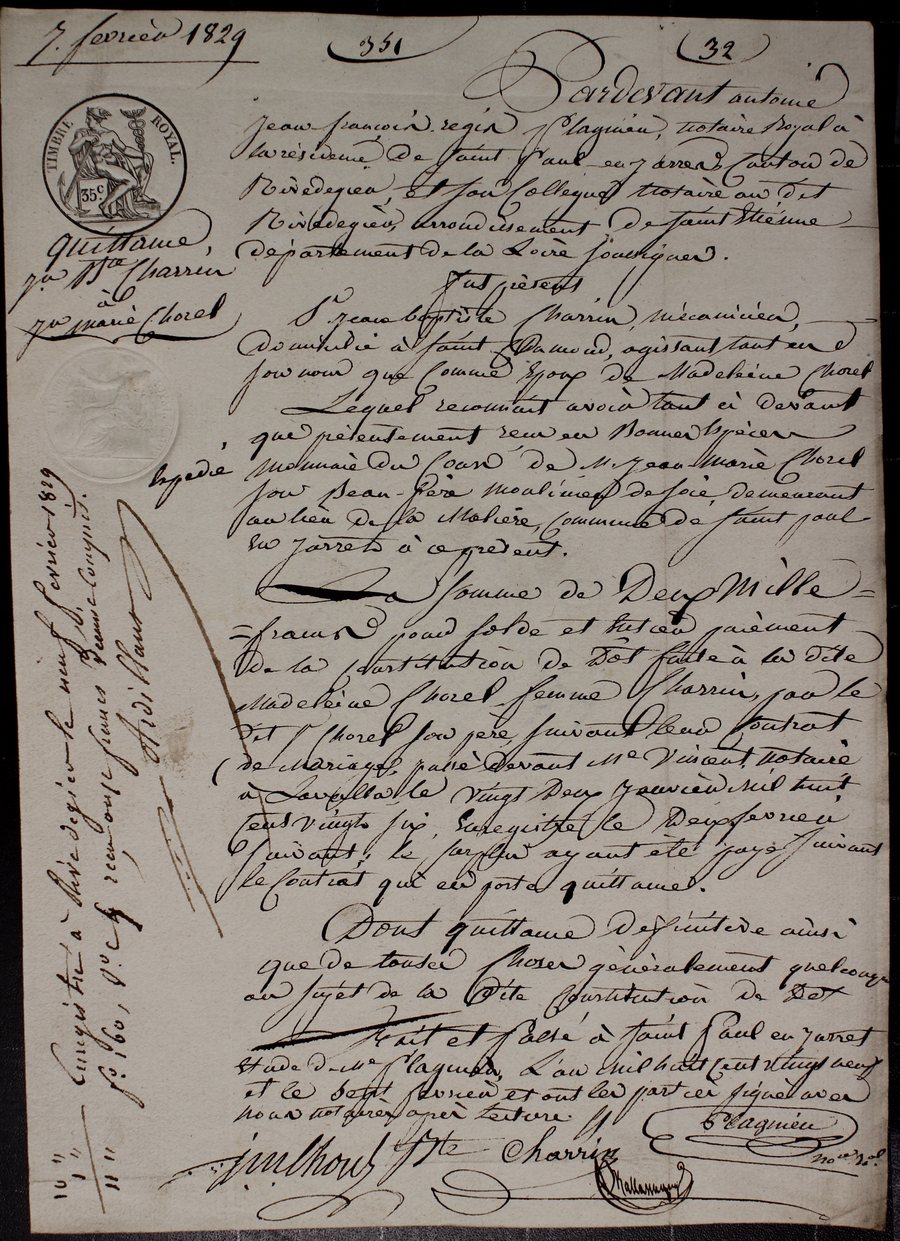 7. fevrier 1829
351
32
TIMBRE ROYAL.
35c.
quittance,
par Bte Charrin
à
jn marie Chorel
Expedié
Pardevant antoine
jean françois regis Plagnieu, notaire Royal à
la résidence de Saint Paul en Jarret, Canton de
Rivedegier, et son Collegue notaire au dit
Rivedegier, arrondissement de Saint Etienne
département de la Loire soussignés.
fut présent
Sr jean baptiste Charrin, mécanicien,
Domicilié à Saint Chamond, agissant tant en
son nom que Comme Epoux de Madeleine Chorel
Lequel reconnait avoir tant ci devant
que présentement reçu en Bonnes Espèces
Monnaie du Cours de Mr jean-Marie Chorel
son Beau-père moulinier de soie demeurant
au lieu de la Maliere, Commune de Saint paul
En jarret à ce présent.
La somme de Deux Mille
francs pour solde et entier paiement
de la Constitution de Dot faite à la dite
Madeleine Chorel femme Charrin, par le
dit Sr Chorel son père, suivant leur Contrat
de Mariage, passé devant Me Vincent, notaire
à Lavalla le vingt Deux janvier mil huit
cent vingt six, Enregistré le Deux fevrier
suivant, le surplus ayant été payé suivant
le Contrat qui en porte quittance.
Dont quittance définitive ainsi
que de toutes Choses généralement quelconques
au sujet de la dite Constitution de Dot
Fait et Passé à Saint Paul en Jarret
Etude de Me Plagnieu, L'an mil huit cent vingt neuf
et le sept fevrier et ont les parties signé avec
nous notaires après lecture.
Bte Charrin
Plagnieu
nore Ral
Enregistré à Rivedegier le neuf fevrier 1829
fo. 160, Ro. C. 4 reçu onze francs Dixme Compris.
10 "
1 "
11 "